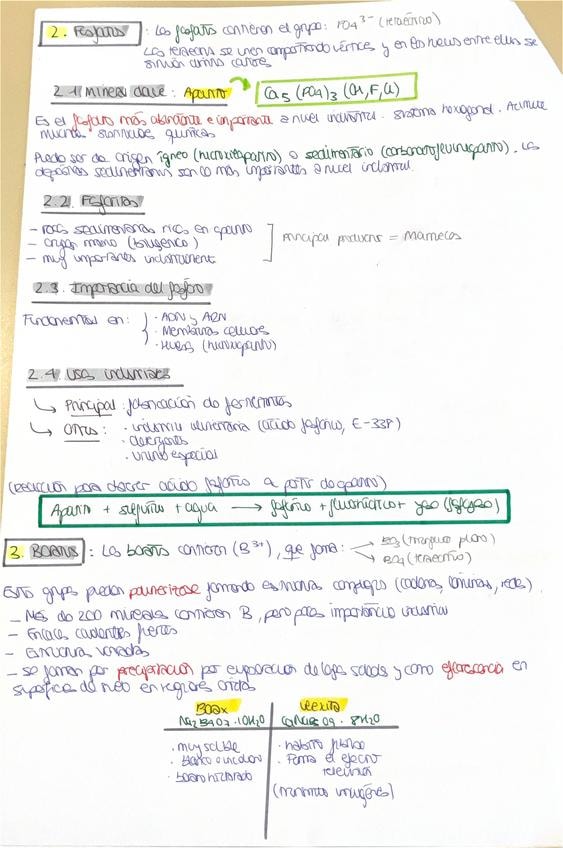 2. Fosfatos : Los fosfatos contienen el grupo: PO4 3- (tetraédrico)
Los tetraedros se unen compartiendo vértices y en los huecos entre ellos se
sitúan otros cationes
2.1 Mineral clave: Apatito → Ca5 (PO4)3 (OH, F, Cl)
Es el fosfato más abundante e importante a nivel industrial. Sistema hexagonal. Admite
muchas sustituciones químicas
Puede ser de origen ígneo (hidroxiapatito) o sedimentario (carbonato/fluorapatito). Los
depósitos sedimentarios son lo más importantes a nivel industrial.
2.2. Fosforitas
- rocas sedimentarias ricas en apatito
- origen marino (biogénico)
- muy importantes industrialment
Principal productor = Marruecos
2.3. Importancia del fosforo
Fundamental en :
· ADN y ARN
· Membranas celulares
· Huesos (hidroxiapatito)
2.4 Usos industriales
↳ Principal: fabricación de fertilizantes
↳ Otros : · industria alimentaria (ácido fosfórico, E-338)
· detergentes
· vidrio especial
(Reacción para obtener ácido fosfórico a partir de apatito)
Apatito + sulfúrico + agua → fosfórico + fluorhídrico + yeso (fosfoyeso)
3. Boratos : Los boratos contienen (B3+), que forma:
→ BO3 (triangular plano)
→ BO4 (tetraédrico)
Estos grupos pueden polimerizarse formando estructuras complejas (cadenas, láminas, redes)
- Más de 200 minerales contienen B, pero pocos importancia industrial
- Enlaces covalentes fuertes
- Estructuras variadas
- se forman por precipitación por evaporación de lagos salados y como eflorescencia en
superficies del suelo en regiones áridas
Borax
Na2B4O7·10H2O
· muy soluble
· blanco o incoloro
· borato hidratado
Ulexita
CaNaB5O9 · 8H2O
· habito fibroso
· Forma el efecto
televisión
(transmite imágenes)